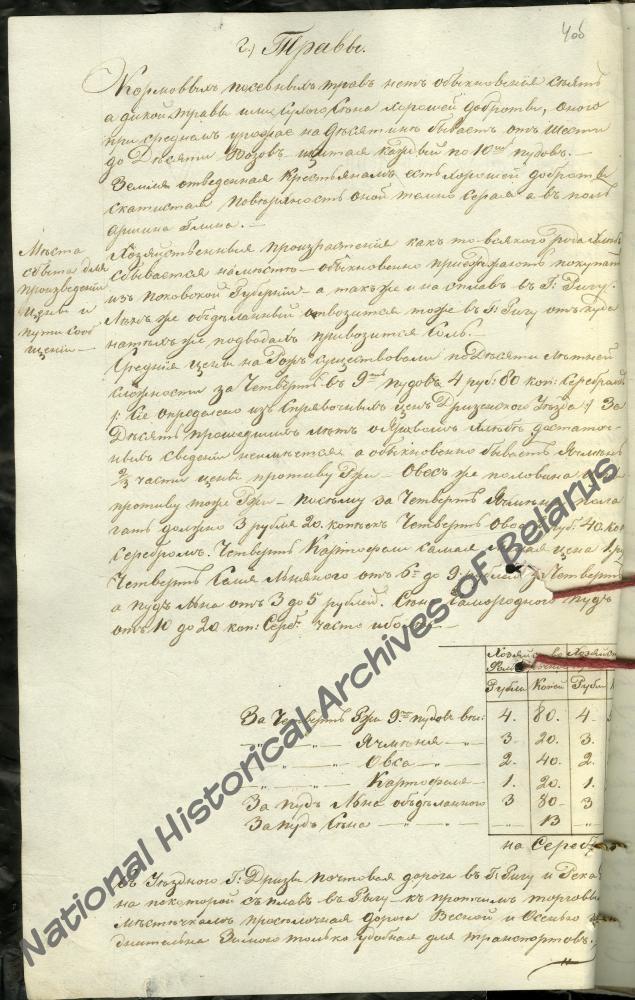 406
г.) Травы.
Кормовыхъ посевныхъ травъ нетъ обыкновенія сѣять
а дикой травы или сухого сѣна хорошей доброты, оного
при среднемъ урожае на десятинѣ бываетъ отъ шести
до Десяти Возовъ щитая каждый по 10ти пудовъ. —
Земля отведенная Крестьянамъ есть хорошей доброты
скатистая поверхность оной темно серая а въ полъ
аршина Глина. —
Мѣста
сбыта для
произведеній
цены и
пути сооб
щенія —
Хозяйственныя произрастенія какъ то всякого рода хлѣбъ
сбывается на мѣстѣ — обыкновенно приезжаютъ покупать
изъ Псковской Губерніи а также и на сплавъ въ Г: Ригу.
Ленъ же обделанный отвозится тоже въ Г: Ригу отъ куда
на техъ же подводахъ привозится Соль. —
Средния цены на Рожъ существовали по Десяти летней
сложности за Четверть въ 9ть пудовъ 4 руб: 80 коп: серебромъ
/: Сіе определено изъ Справочныхъ ценъ Дризенского Уезда :/ За
Десять прошедшихъ летъ о Яровомъ хлебѣ достаточ-
ныхъ сведеній неимеется а обыкновенно бываетъ Ячмень
2/3 части цены противу Ржи — Овесъ же половина
противу тоже Ржи — посему за Четверть Ячменя пола
гать должно 3 рубля 20. копѣекъ Четверть Овса 2 руб: 40 коп
серебромъ. Четверть Картофели самая цена 1. ру
Четверть Семя Льняного отъ 6. до 9 рублей Четверть
а пудъ Льна отъ 3 до 5 рублей. Сена самородного пудъ
отъ 10 до 20 коп: Сереб: часто и более —
Рубли Копей Рубли
За Четверть Ржи 9ть пудовъ вы: 4. 80. 4.
„ — „ — Ячменя — „ — 3. 20. 3.
„ — „ — Овса — „ — 2. 40. 2.
„ — „ — Картофеля — 1. 20. 1.
За пудъ Льна обделанного 3 80 3
За пудъ Сена — „ — „ — 13
на Сереб
Въ Уездного Г: Дризы почтовая дорога въ Г: Ригу и Река
на которой сплавъ въ Ригу — къ протчимъ торговы
местечкамъ проселочная дорога Весной и Осенью
днительна Зимою только удобная для транспортовъ.
National Historical Archives of Belarus